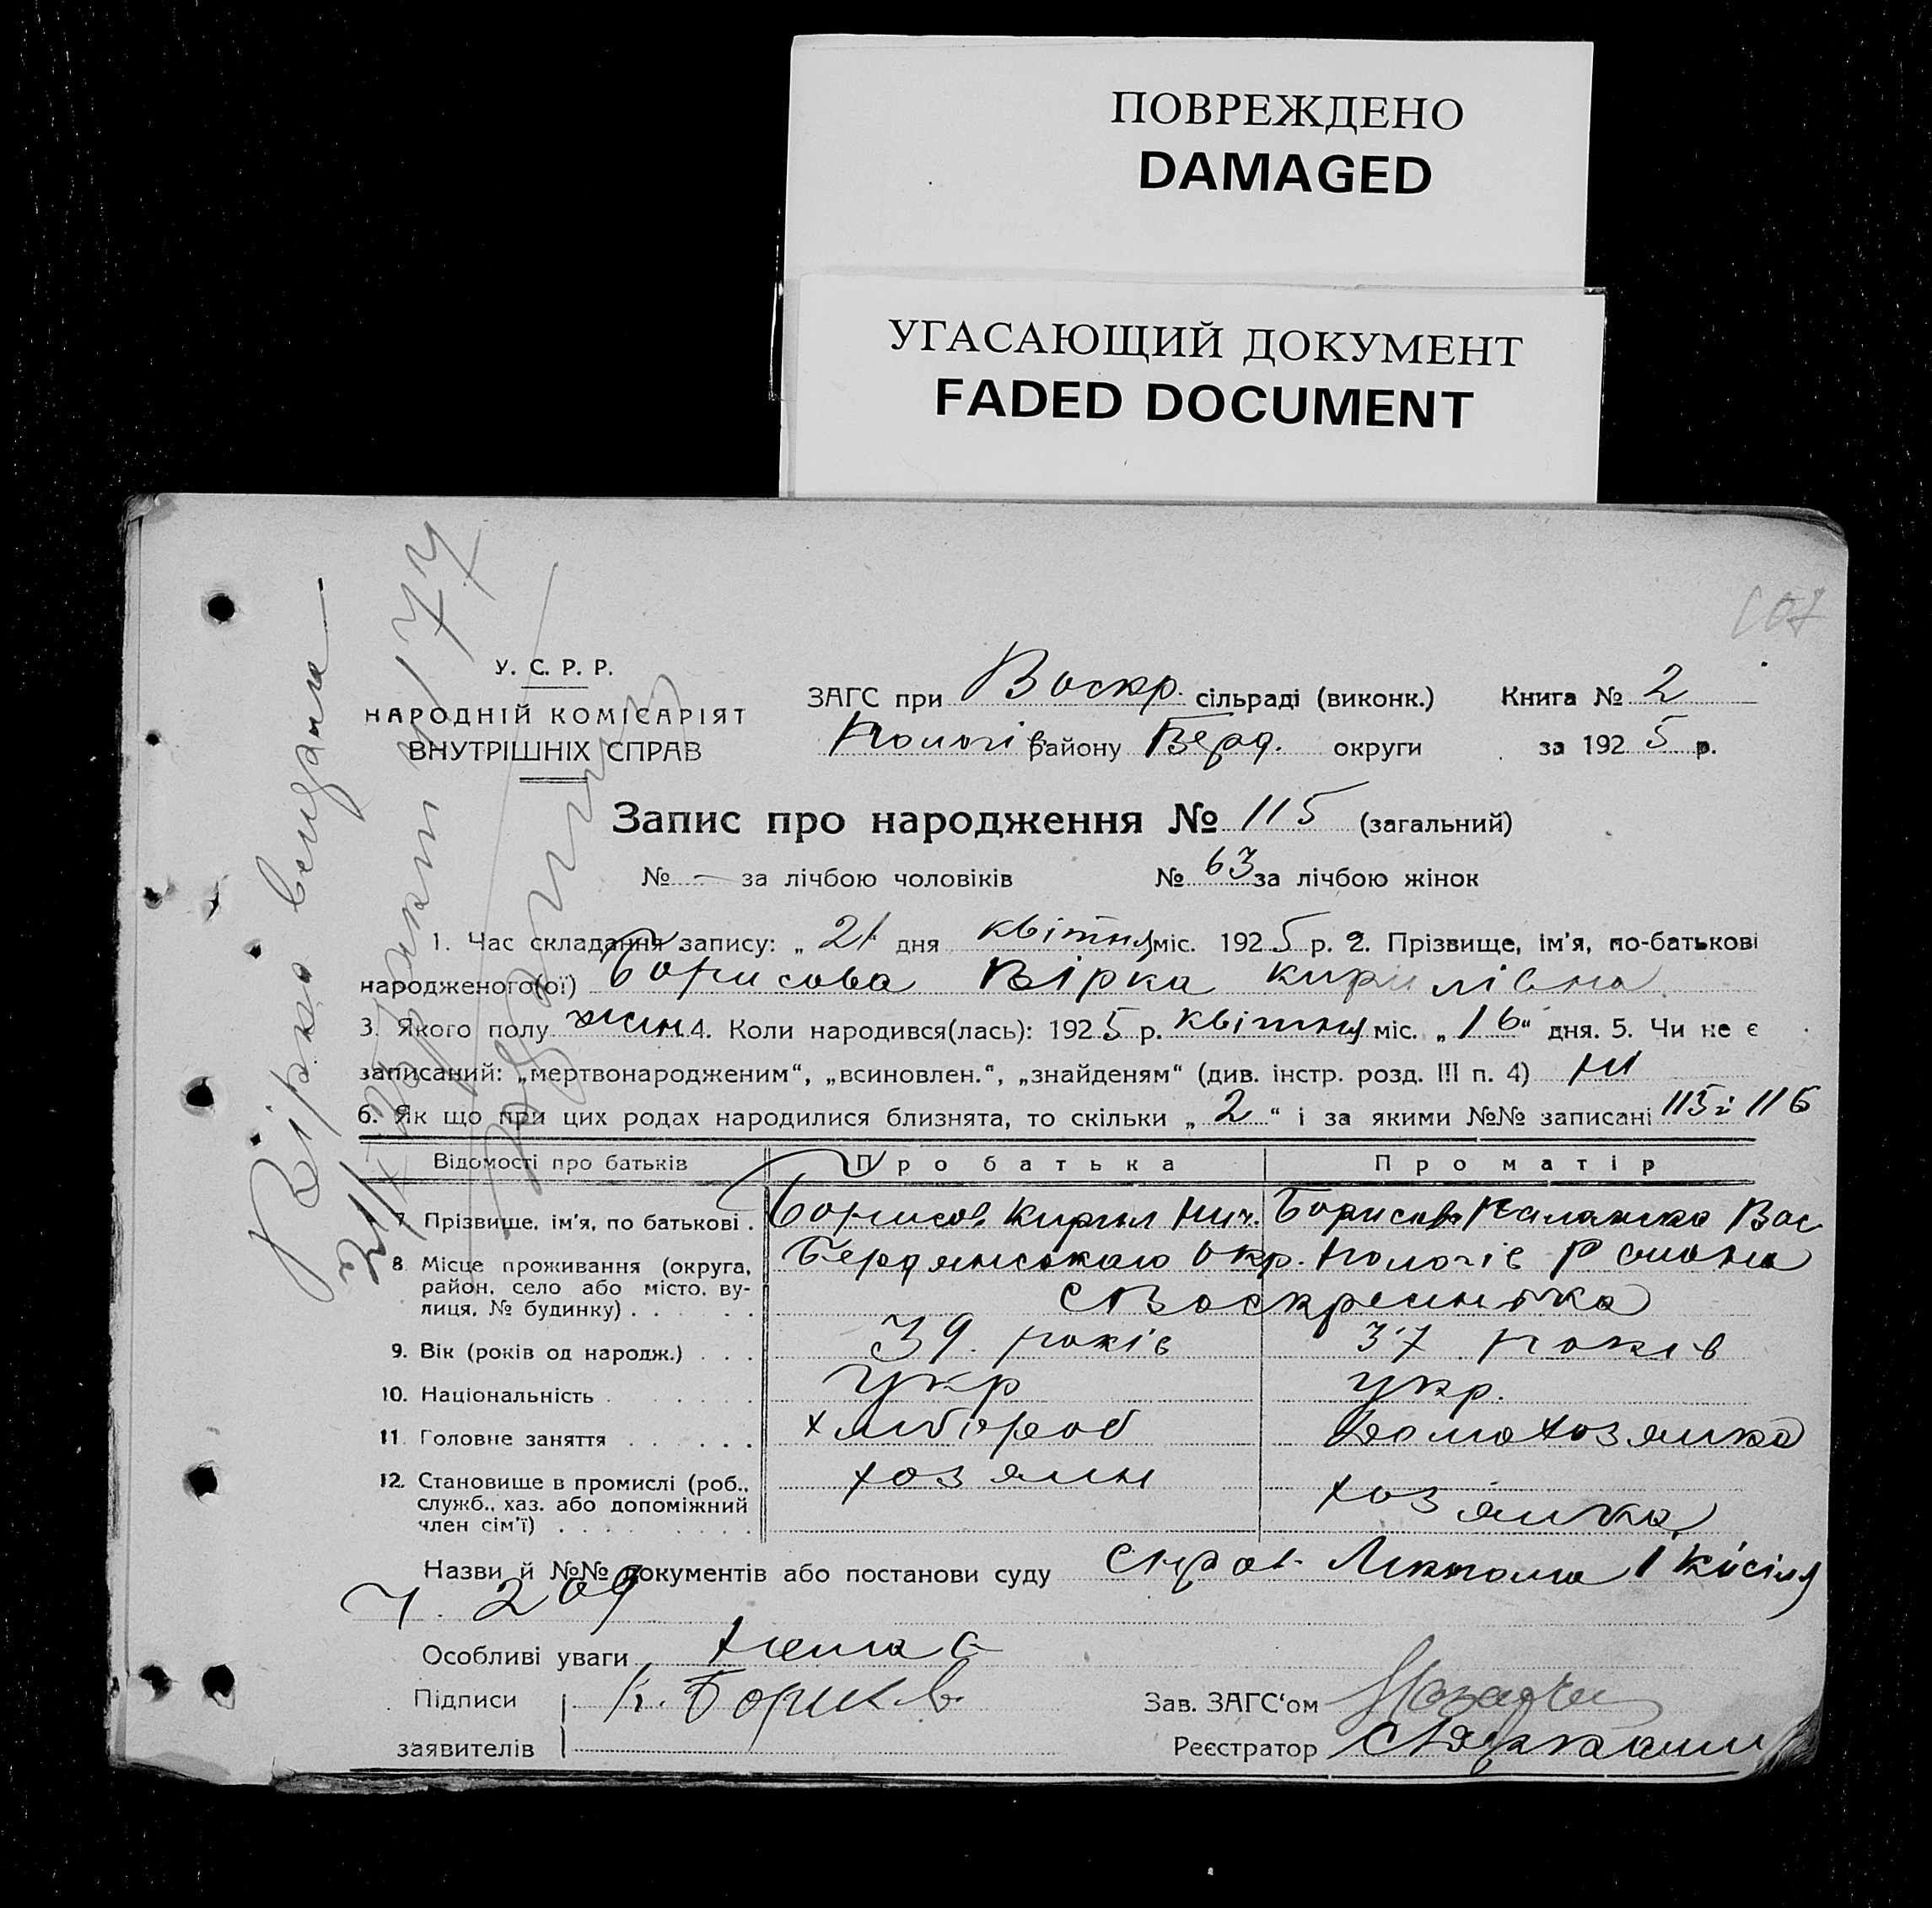 ПОВРЕЖДЕНО
DAMAGED
УГАСАЮЩИЙ ДОКУМЕНТ
FADED DOCUMENT
У. С. Р. Р.
НАРОДНІЙ КОМІСАРІЯТ
ВНУТРІШНІХ СПРАВ
ЗАГС при Воскр. сільраді (виконк.) Книга № 2
Пологів району Берд. округи за 1925 р.
Запис про народження № 115 (загальний)
№ — за лічбою чоловіків № 63 за лічбою жінок
1. Час складання запису: „ 21 дня квітня міс. 1925 р. 2. Прізвище, ім'я, по-батькові
народженого(ої) Борисова Вірка Кирилівна
3. Якого полу жін. 4. Коли народився(лась): 1925 р. квітня міс. „16“ дня. 5. Чи не є
записаний: „мертвонародженим“, „всиновлен.“, „знайденям“ (див. інстр. розд. III п. 4) ні
6. Як що при цих родах народилися близнята, то скільки „2“ і за якими №№ записані 115 і 116
Відомості про батьків Про батька Про матір
7. Прізвище, ім'я, по батькові . Борисов Кирил Борисова Вас
8. Місце проживання (округа, район, село або місто, вулиця, № будинку) . . . Бердянського Окр. Пологів Району
с Воскресенка
9. Вік (років од народж.) . . . 39 років 37 років
10. Національність . . . . . укр укр.
11. Головне заняття . . . . . . хлібороб домохозяйка
12. Становище в промислі (роб., служб., хаз. або допоміжний член сім'ї) . . . . хозяин хозяйка
Назви й №№ документів або постанови суду
ч. 209
Особливі уваги нема
Підписи К. Борисов Зав. ЗАГС‘ом
заявителів Реєстратор
Вірка